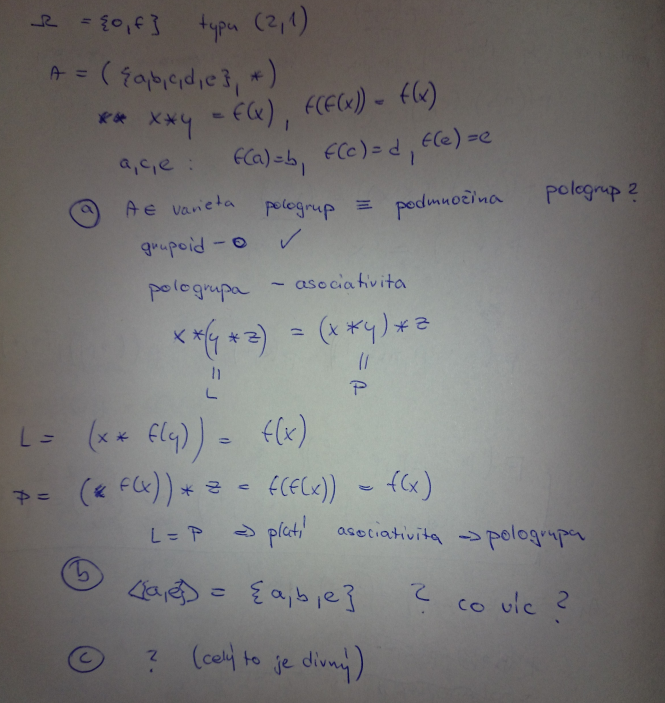 Ω = {o, f} typu (2,1)
A = ({a,b,c,d,e}, *)
x*y = f(x), f(f(x)) = f(x)
a,c,e : f(a)=b, f(c)=d, f(e)=e
(a) A ∈ varieta pologrup ≡ podmnožina pologrup?
grupoid - o ✓
pologrupa - asociativita
x*(y*z) = (x*y)*z
|| ||
L P
L = (x * f(y)) = f(x)
P = (f(x)) * z = f(f(x)) = f(x)
L = P ⇒ platí asociativita ⇒ pologrupa
(b) <{a,e}> = {a,b,e} ? co víc ?
(c) ? (celý to je divný)